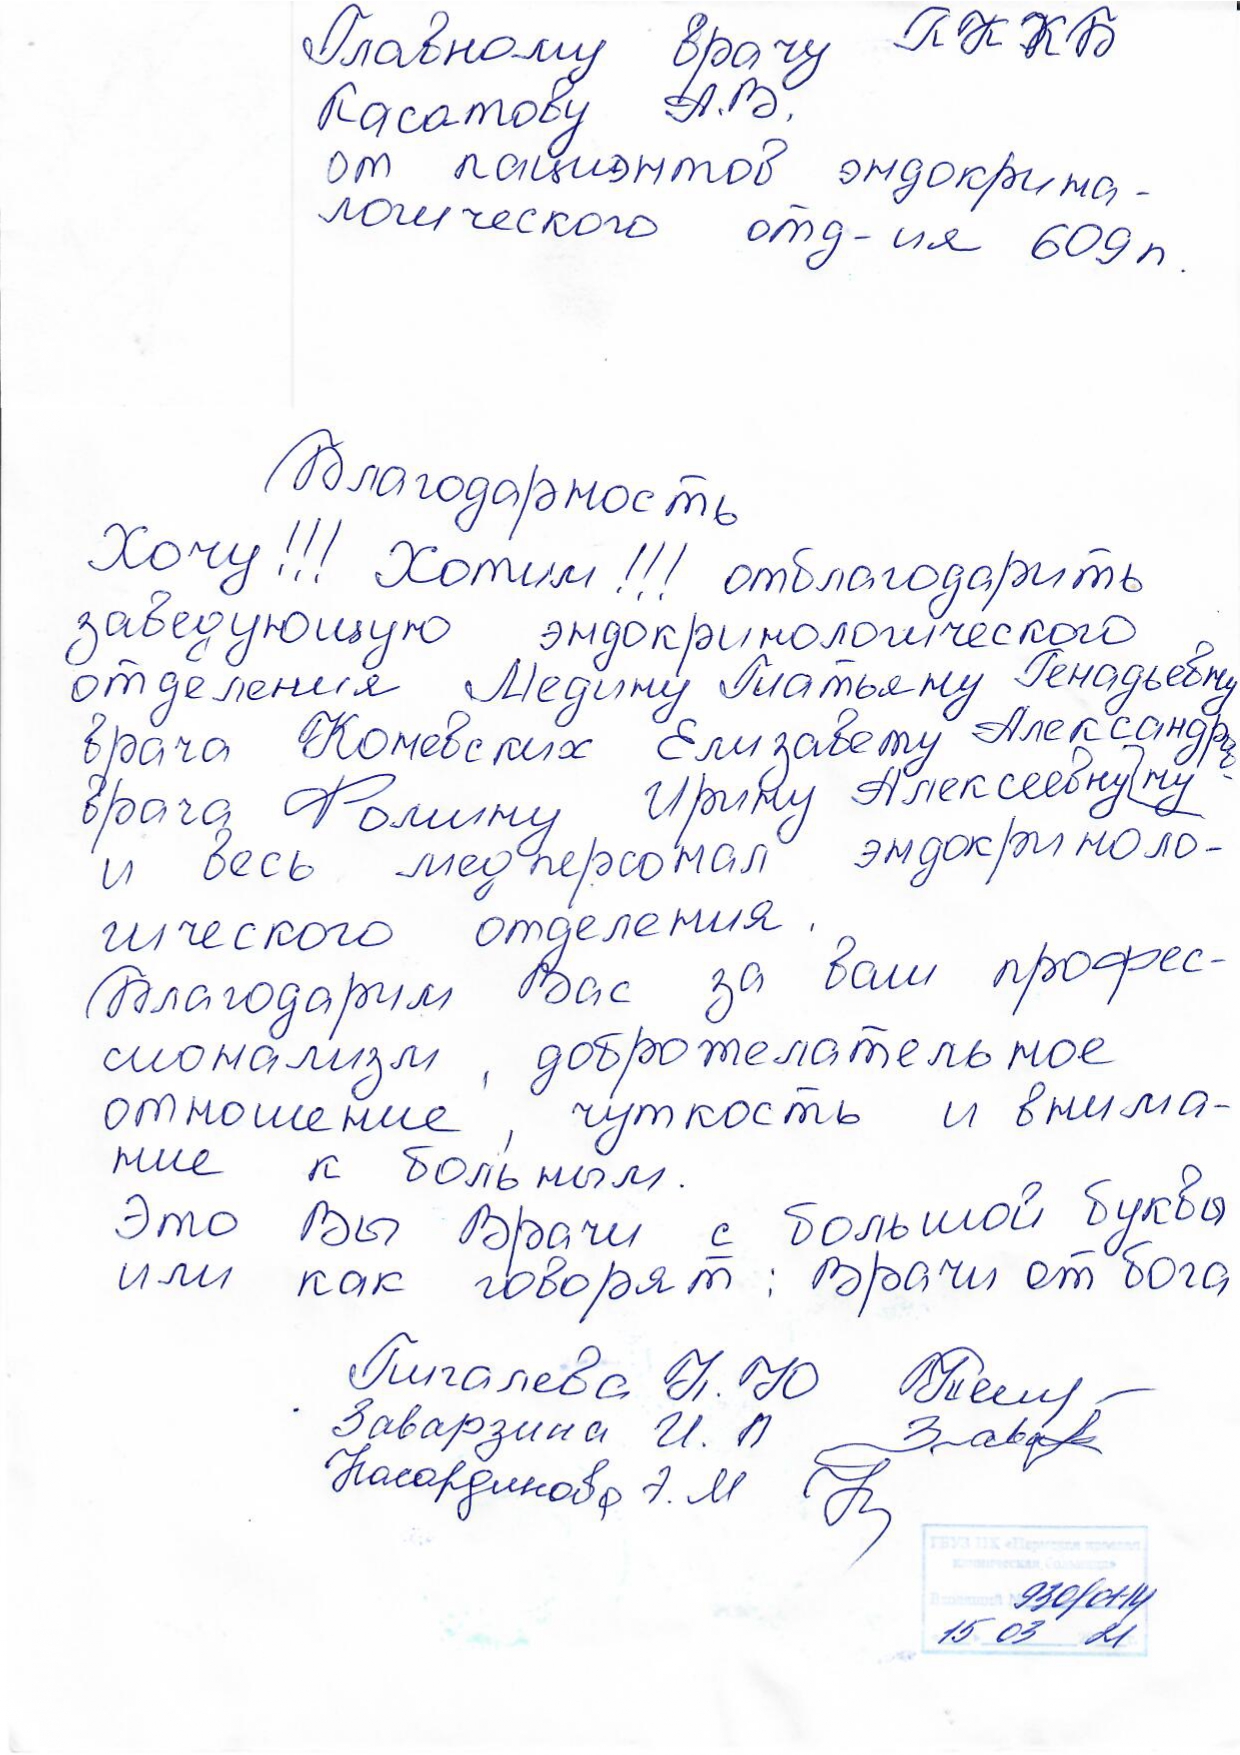 Главному врачу ПККБ
Касатову А.В.
от пациэнтов эндокрина-
логического отд-ия 609п.
Благодарность
Хочу!!! Хотим!!! отблагодарить
заведующую эндокринологического
отделения Медину Татьяну Генадьевну
врача Коневских Елизавету Александров-
врача Фомину Ирину Алексеевну ну
и весь медперсонал эндокриноло-
гического отделения.
Благодарим Вас за ваш профес-
сионализм, доброжелательное
отношение, чуткость и внима-
ние к больным.
Это Вы Врачи с большой буквы
или как говорят: Врачи от бога
Пигалева Н.Ю
Заварзина И. П
Насардинова Э. М
ГБУЗ ПК «Пермская краевая
клиническая больница»
Входящий №
15 03 21